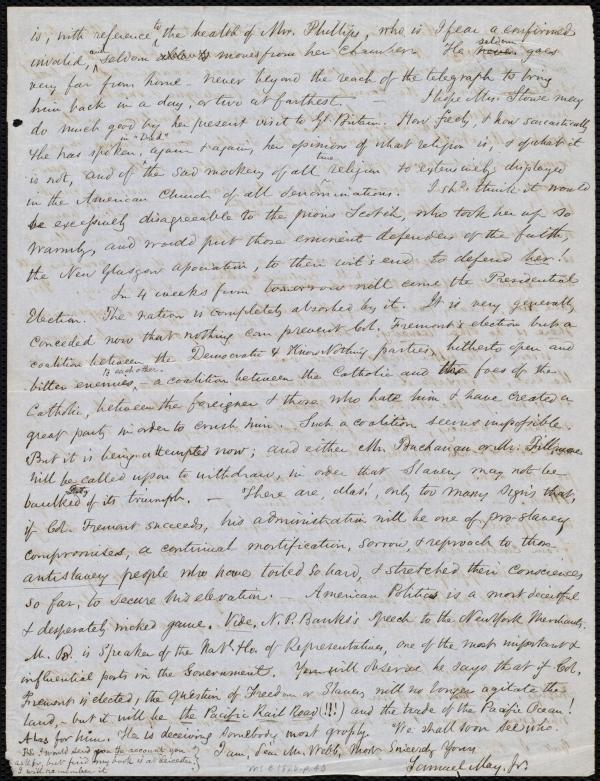 is, with reference to the health of Mrs. Phillips, who is I fear a confirmed
invalid, and seldom moves from her chamber. He seldom never goes
very far from home - never beyond the reach of the telegraph to bring
him back in a day, or two at farthest. — I hope Mrs. Stowe may
do much good by her present visit to Gt. Britain. How freely, & how sarcastically
she has spoken, in "Dred" again & again, her opinions of what religion is, & of what it
is not, and of the sad mockery of all true religion so extensively displayed
in the American Church of all denominations. I shd. think it would
be excessively disagreeable to the pious Scotch, who took her up so
warmly, and would put those eminent defenders of the faith,
the New Glasgow Association, to their wit's end to defend her.
In 4 weeks from tomorrow will come the Presidential
Election. The nation is completely absorbed by it. It is very generally
conceded now that nothing can prevent Col. Fremont's election but a
coalition between the Democratic & Know Nothing parties, hitherto open and
bitter enemies to each other, - a coalition between the Catholic and the foes of the
Catholic, between the foreigner & those who hate him & have created a
great party in order to crush him. Such a coalition seems impossible.
But it is being attempted now; and either Mr. Buchanan or Mr. Fillmore
will be called upon to withdraw, in order that Slavery may not be
baulked of its triumph. — There are, alas, only too many signs that,
if Col. Fremont succeeds, his administration will be one of pro-slavery
compromises, a continual mortification, sorrow, & reproach to those
antislavery people who have toiled so hard, & stretched their consciences
so far, to secure his elevation. — American Politics is a most deceitful
& desperately wicked game. Vide, N. P. Banks's speech to the New York Merchants.
Mr. B. is Speaker of the Natl. Ho. of Representatives, one of the most important &
influential posts in the Government. You will observe he says that if Col.
Fremont is elected, the question of Freedom or Slavery will no longer agitate the
land, - but it will be the Pacific Rail Road (!!!) and the trade of the Pacific Ocean!
Alas for him. He is deceiving somebody most grossly. We shall soon see who.
I am, Dear Mr. Webb, Most Sincerely Yours,
Samuel May, Jr.
PS. I would send you the account you
ask for, but find my book is at Leicester.
I will remember it